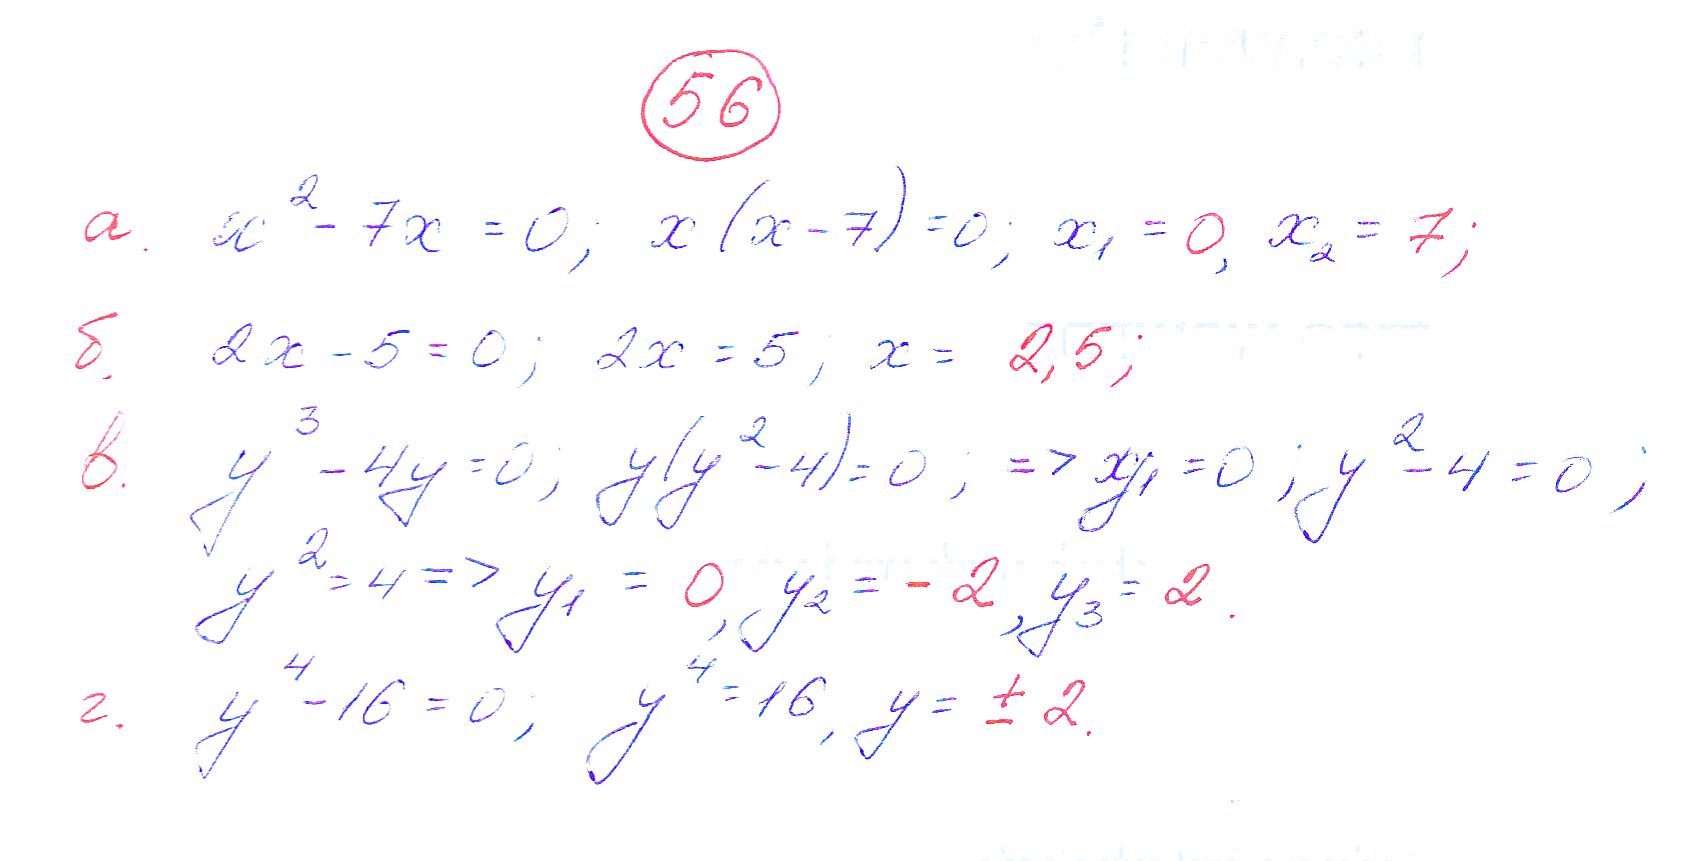 56
а. x² - 7x = 0; x(x - 7) = 0; x₁ = 0, x₂ = 7;
б. 2x - 5 = 0; 2x = 5; x = 2,5;
в. y³ - 4y = 0; y(y² - 4) = 0; => y₁ = 0; y² - 4 = 0;
y² = 4 => y₁ = 0, y₂ = - 2, y₃ = 2.
г. y⁴ - 16 = 0; y⁴ = 16, y = ± 2.